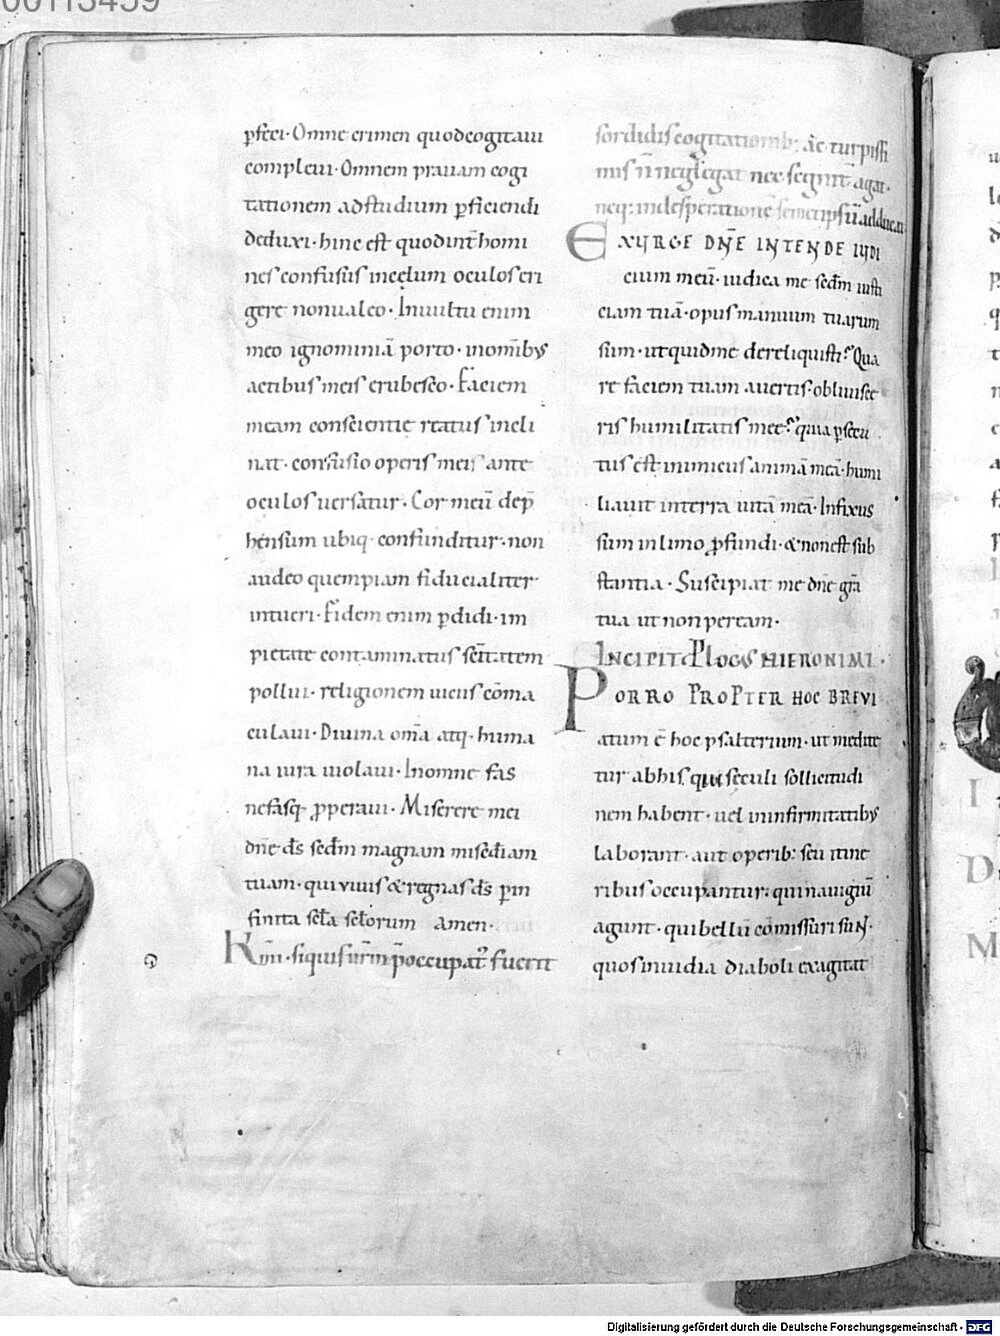 00113459
ꝑfeci· Omne crimen quod cogitaui
compleui· Omnem prauam cogi
tationem ad studium ꝑficiendi
deduxi· hinc est quod int̄ homi
nes confusus incedum oculos eri
gere non ualeo· In uultu enim
meo ignominiā porto· in omnibꝰ
actibus meis erubesco· Faciem
meam conscientię reatus incli
nat· confusio operis mei ante
oculos uersatur· Cor meū dep̄
hensum ubiq· confunditur· non
audeo quempiam fiducialiter
intueri· Fidem enim ꝑdidi· im
pietate contaminatus sc̄itatem
pollui· religionem uicus cōma
culaui· Diuina om̄a atq· huma
na iura uiolaui· In omne fas
nefasq ꝓperaui· Miserere mei
dn̄e ds̄ sedm̄ magnam misc̄diam
tuam· qui uiuis & regnas ds̄ ꝑ in
finita sc̄la sc̄lorum amen·
siquis p̄occupat᷒ fuerit
sordidis cogitationib; ac turpissi
mis n̄ neglegat nec segnit̄ agat·
neq; in desperationē semetipsū adducat
EXURGE DN̄E INTENDE IUDI
cium meū· iudica me sedm̄ iusti
ciam tuā· opus manuum tuarum
sum· ut quid me dereliquisti? Qua
re faciem tuam auertis· obliuisce
ris humilitatis meę? quia ꝑsecu
tus est inimicus animā meā· humi
liauit in terra uitā meā· Infixus
sum in limo ꝓfundi· & non est sub
stantia· Suscipiat me dn̄e gr̄a
tua ut non peream·
INCIPIT PLOGUS HIERONIMI·
PORRO PROPTER HOC BREVI
atum ē hoc psalterium· ut medite
tur ab his qui sęculi sollicitudi
nem habent· uel in infirmitatibꝰ
laborant· aut operib; seu itine
ribus occupantur· qui nauigiū
agunt· qui bellū cōmissuri sunt·
quos inuidia diaboli exagitat
I
D
M
Digitalisierung gefördert durch die Deutsche Forschungsgemeinschaft - DFG